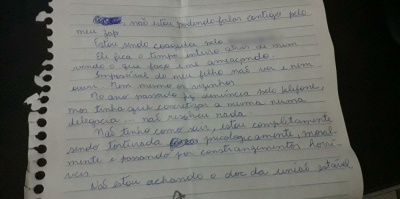 , não estou podendo falar contigo pelo
meu zap.
Estou sendo coagida pelo
Ele fica o tempo inteiro atrás de mim
vendo o que faço e me ameaçando.
Impossível do meu filho não ver e nem
ouvir. Nem mesmo os vizinhos
No ano passado fiz denúncia pelo telefone,
mas tinha que concretizar a mesma numa
delegacia não resolveu nada.
Não tenho como sair, estou completamente
sendo torturada psicologicamente, moral-
mente e passando por constrangimentos horrí-
veis.
Não estou achando o doc da união estável